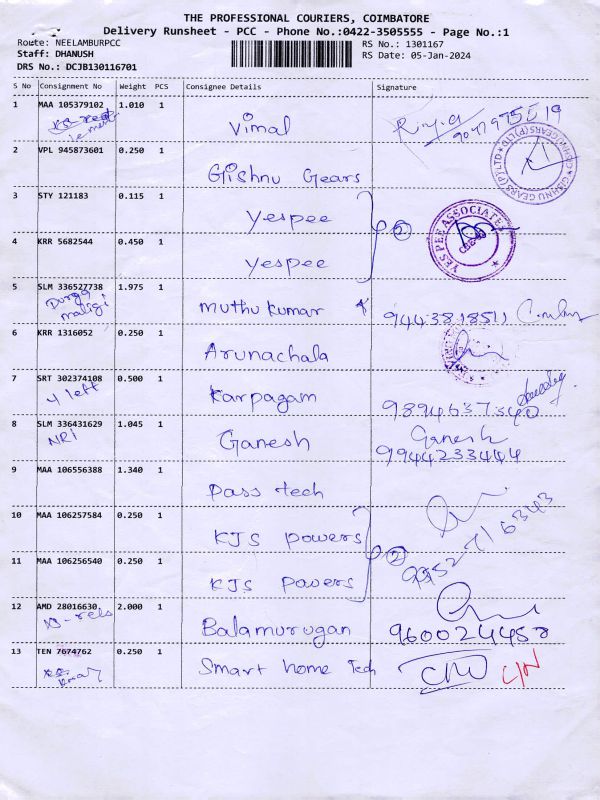 THE PROFESSIONAL COURIERS, COIMBATORE
Delivery Runsheet - PCC - Phone No.:0422-3505555 - Page No.:1
Route: NEELAMBURPCC
RS No.: 1301167
Staff: DHANUSH
RS Date: 05-Jan-2024
DRS No.: DCJB130116701
S No Consignment No Weight PCS Consignee Details Signature
1 MAA 105379102 1.010 1 Vimal
2 VPL 945873601 0.250 1 Gishnu Gears
GISHNU GEARS (P) LTD
3 STY 121183 0.115 1 yespee
YES PEE ASSOCIATES
2
4 KRR 5682544 0.450 1 yespee
5 SLM 336527738 1.975 1 Muthu kumar
Durga
9443818511
6 KRR 1316052 0.250 1 Arunachala
7 SRT 302374108 0.500 1 Karpagam
4 left
9894637340
8 SLM 336431629 1.045 1 Ganesh Ganesh
NRI
9944233444
9 MAA 106556388 1.340 1 Pass tech
10 MAA 106257584 0.250 1 KJS powers
2
11 MAA 106256540 0.250 1 KJS powers
12 AMD 28016630 2.000 1 Balamurugan
13 TEN 7674762 0.250 1 Smart home Tech